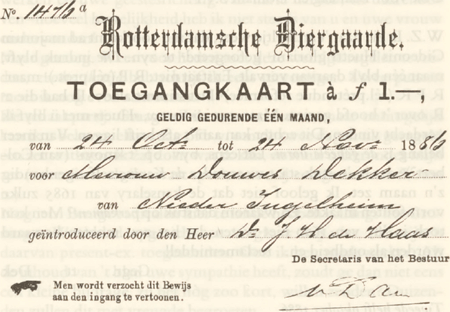 No. 1476a
Rotterdamsche Diergaarde.
TOEGANGKAART à ƒ 1.—,
GELDIG GEDURENDE ÉÉN MAAND,
van 24 Oct. tot 24 Nov. 188
voor Mevrouw Douwes Dekker
van Nieder Ingelheim
geïntroduceerd door den Heer Dr. J. H. de Haas
De Secretaris van het Bestuur
Men wordt verzocht dit Bewijs
aan den ingang te vertoonen.